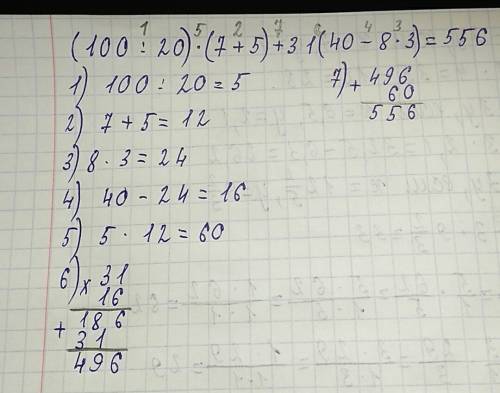 1 5 2 7 6 4 3
(100 : 20) · (7 + 5) + 31(40 - 8 · 3) = 556
1) 100 : 20 = 5
2) 7 + 5 = 12
3) 8 · 3 = 24
4) 40 - 24 = 16
5) 5 · 12 = 60
6) x 31
16
+ 186
31
496
7) + 496
60
556